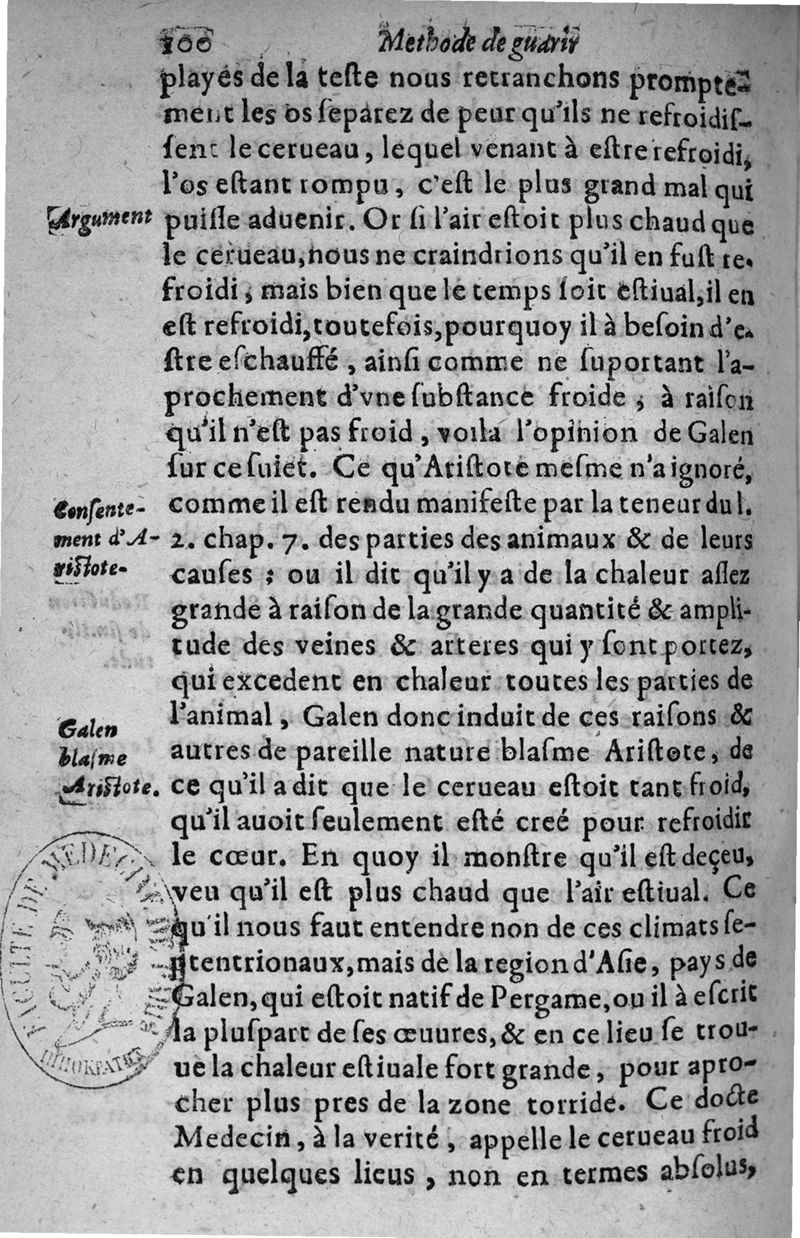 100 Methode de guarir
playes de la teſte nous retranchons prompte-
ment les os ſeparez de peur qu'ils ne refroidiſ-
ſent le cerueau, lequel venant à eſtre refroidi,
l'os eſtant rompu, c'eſt le plus grand mal qui
Argument
puiſſe aduenir. Or ſi l'air eſtoit plus chaud que
le cerueau, nous ne craindrions qu'il en fuſt re-
froidi, mais bien que le temps ſoit eſtiual, il en
eſt refroidi, toutefois, pourquoy il à beſoin d'e-
ſtre eſchauffé, ainſi comme ne ſuportant l'a-
prochement d'vne ſubſtance froide, à raiſon
qu'il n'eſt pas froid, voila l'opinion de Galen
ſur ce ſuiet. Ce qu'Ariſtote meſme n'a ignoré,
Conſente-
ment d'A-
riſtote.
comme il eſt rendu manifeſte par la teneur du l.
2. chap. 7. des parties des animaux & de leurs
cauſes; ou il dit qu'il y a de la chaleur aſſez
grande à raiſon de la grande quantité & ampli-
tude des veines & arteres qui y ſont portez,
qui excedent en chaleur toutes les parties de
l'animal, Galen donc induit de ces raiſons &
Galen
blaſme
Ariſtote.
autres de pareille nature blaſme Ariſtote, de
ce qu'il a dit que le cerueau eſtoit tant froid,
qu'il auoit ſeulement eſté creé pour refroidir
le cœur. En quoy il monſtre qu'il eſt deçeu,
veu qu'il eſt plus chaud que l'air eſtiual. Ce
qu'il nous faut entendre non de ces climats ſe-
ptentrionaux, mais de la region d'Aſie, pays de
Galen, qui eſtoit natif de Pergame, ou il à eſcrit
la pluſpart de ſes œuures, & en ce lieu ſe trou-
ue la chaleur eſtiuale fort grande, pour apro-
cher plus pres de la zone torride. Ce docte
Medecin, à la verité, appelle le cerueau froid
en quelques lieus, non en termes abſolus,
FACULTE DE MEDECINE
HIPPOKRATES